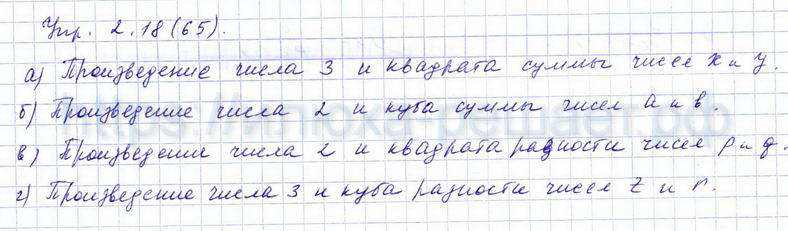 Упр. 2.18(65).
а) Произведение числа 3 и квадрата суммы чисел x и y.
б) Произведение числа 2 и куба суммы чисел a и b.
в) Произведение числа 2 и квадрата разности чисел p и q.
г) Произведение числа 3 и куба разности чисел z и r.